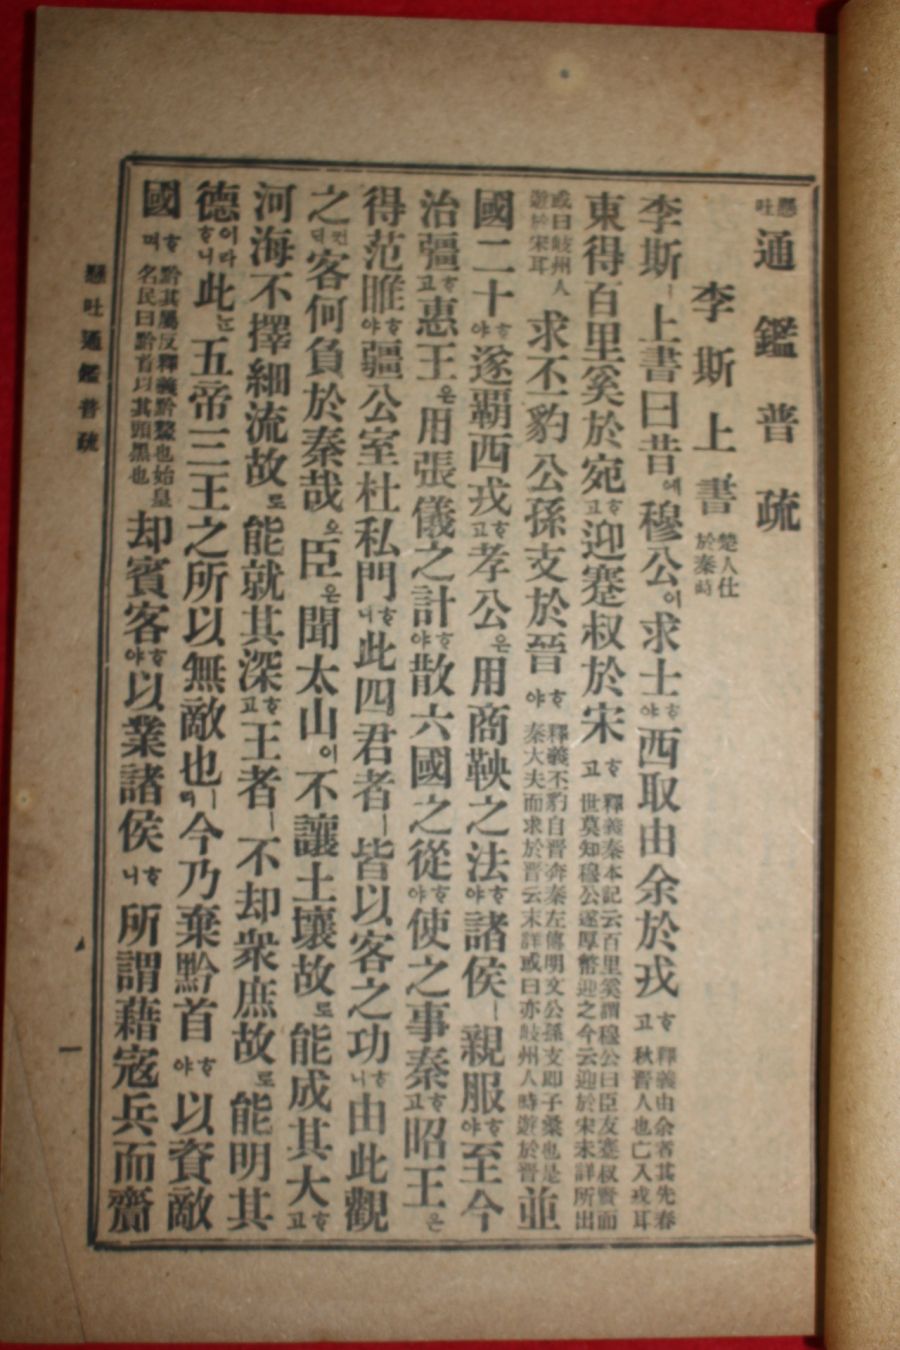 懸吐通鑑普疏
李斯上書 楚人仕於秦時
李斯ㅣ上書曰昔에穆公이求士ᄒᆞ야西取由余於戎ᄒᆞ고 釋義由余者其先春秋晋人也亡入戎耳
東得百里奚於宛ᄒᆞ고迎蹇叔於宋ᄒᆞ고 釋義秦本記云百里奚謂穆公曰臣友蹇叔賢而世莫知穆公遂厚幣迎之今云迎於宋未詳所出
或曰岐州人遊於宋耳 求丕豹公孫支於晉ᄒᆞ야 釋義丕豹自晋奔秦左傳明文公孫支即子桑也是秦大夫而求於晋云未詳或曰亦岐州人時遊於晋 並
國二十ᄒᆞ야遂覇西戎ᄒᆞ고孝公은用商鞅之法ᄒᆞ야諸侯ㅣ親服ᄒᆞ야至今
治彊ᄒᆞ고惠王은用張儀之計ᄒᆞ야散六國之從ᄒᆞ야使之事秦ᄒᆞ고昭王은
得范睢ᄒᆞ야彊公室杜私門ᄒᆞ니此四君者ㅣ皆以客之功ᄒᆞ니由此觀
之컨ᄃᆡ客何負於秦哉오臣은聞太山이不讓土壤故로能成其大ᄒᆞ고
河海不擇細流故로能就其深ᄒᆞ고王者ㅣ不却衆庶故로能明其
德이라ᄒᆞ니此五帝三王之所以無敵也ㅣ今乃棄黔首ᄒᆞ야以資敵
國ᄒᆞ며 黔其屬反釋義黔黧也始皇名民曰黔首以其頭黑也 却賓客ᄒᆞ야以業諸侯ᄒᆞ니所謂藉寇兵而齎
懸吐通鑑普疏
一